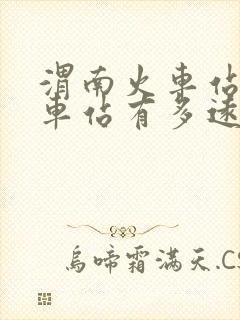 渭南火車佔
車佔有多遠
烏啼霜滿天.CS